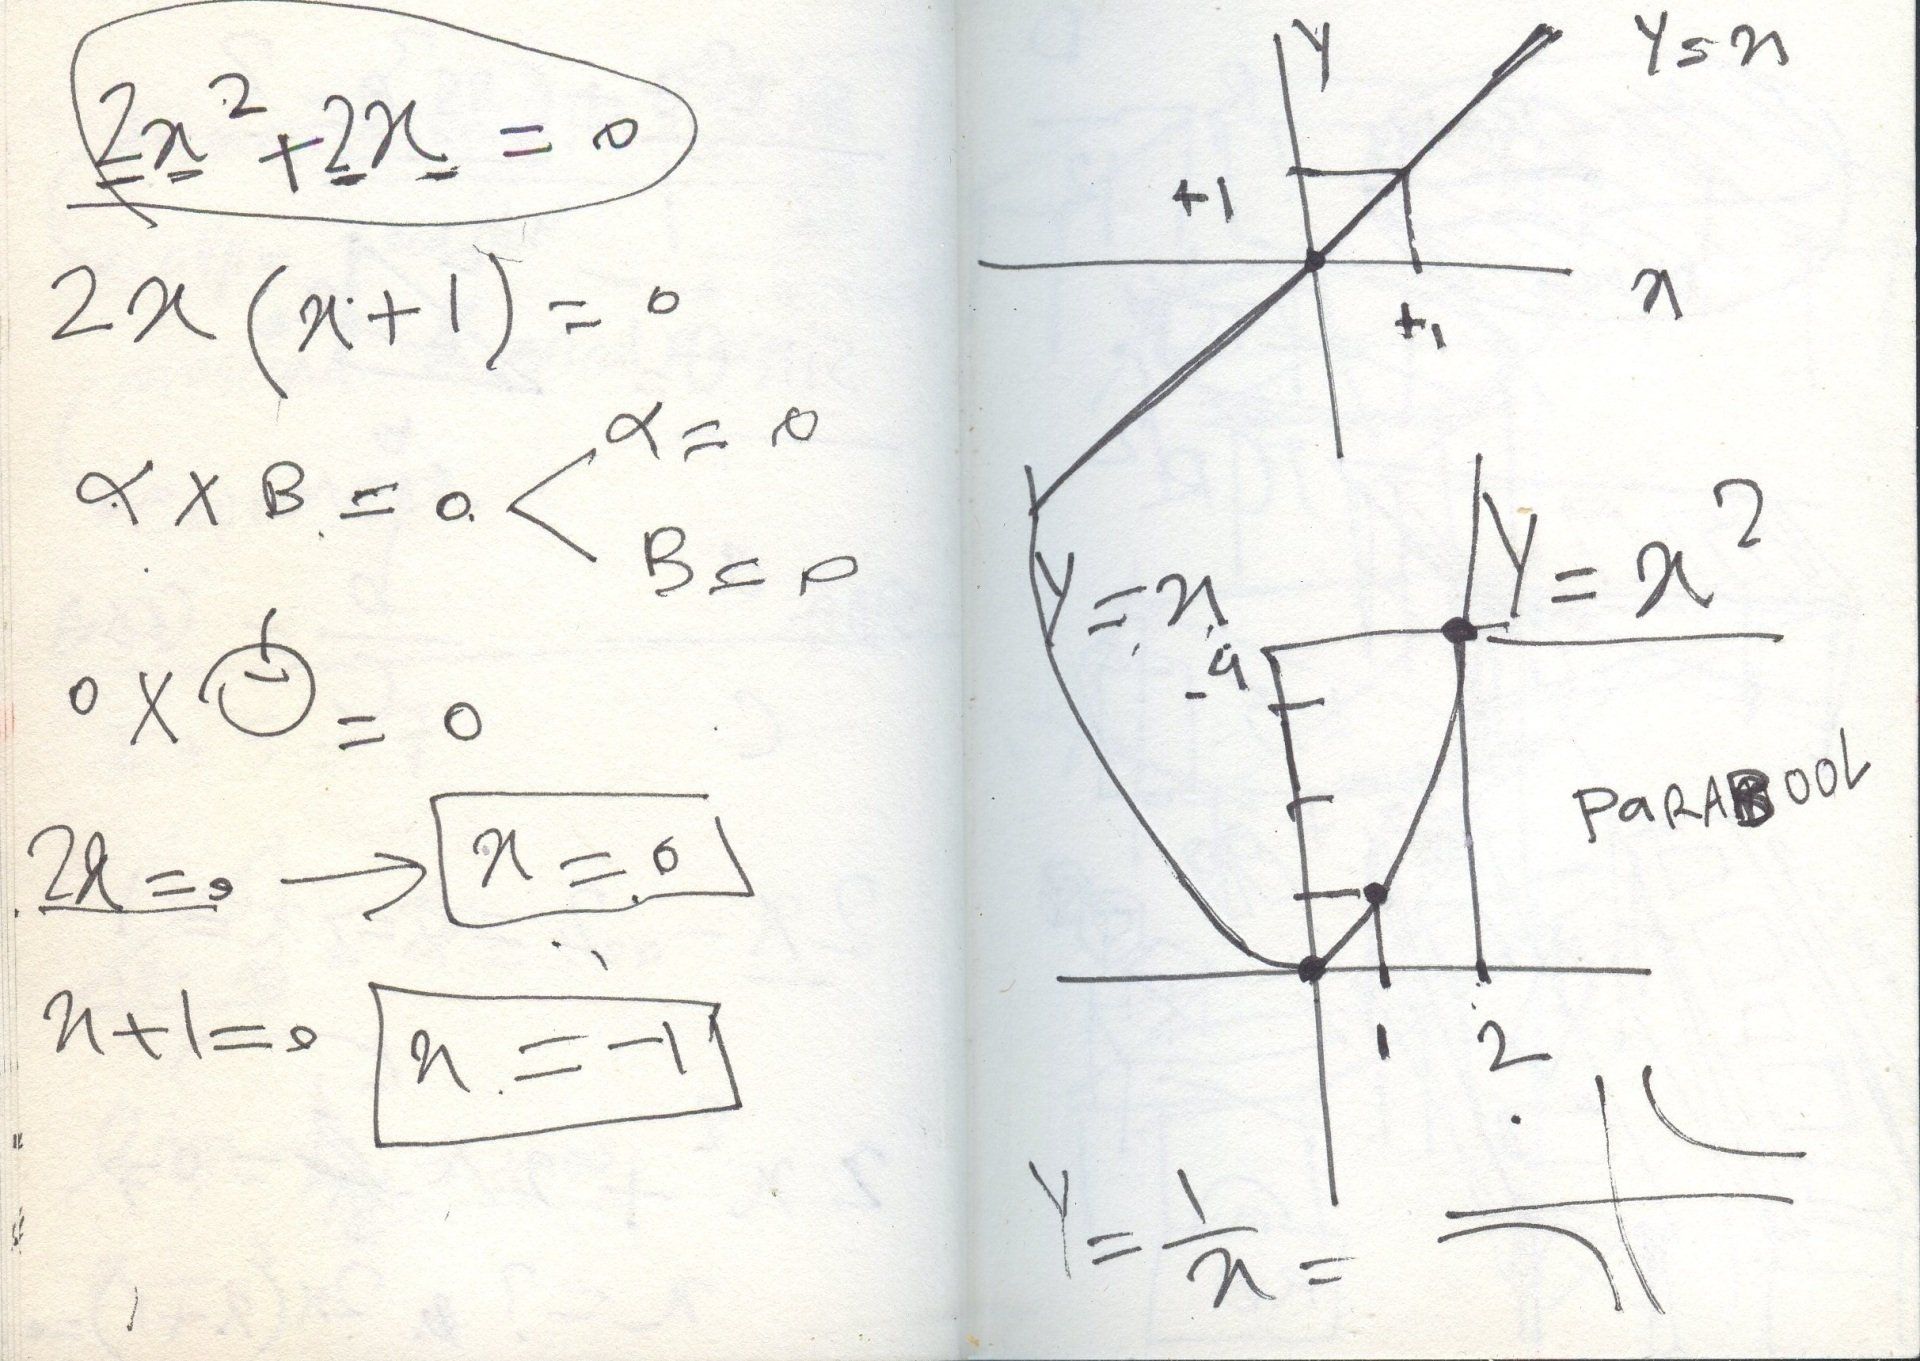 2x² + 2x = 0
2x (x+1) = 0
α × B = 0 < α = 0
B = 0
0 × = 0
2x = 0 → x = 0
x+1 = 0 x = -1
Y Y = x
+1
x
+1
Y = x² 
Y = x
4
PARABOOL
1 2
Y = 1/x =